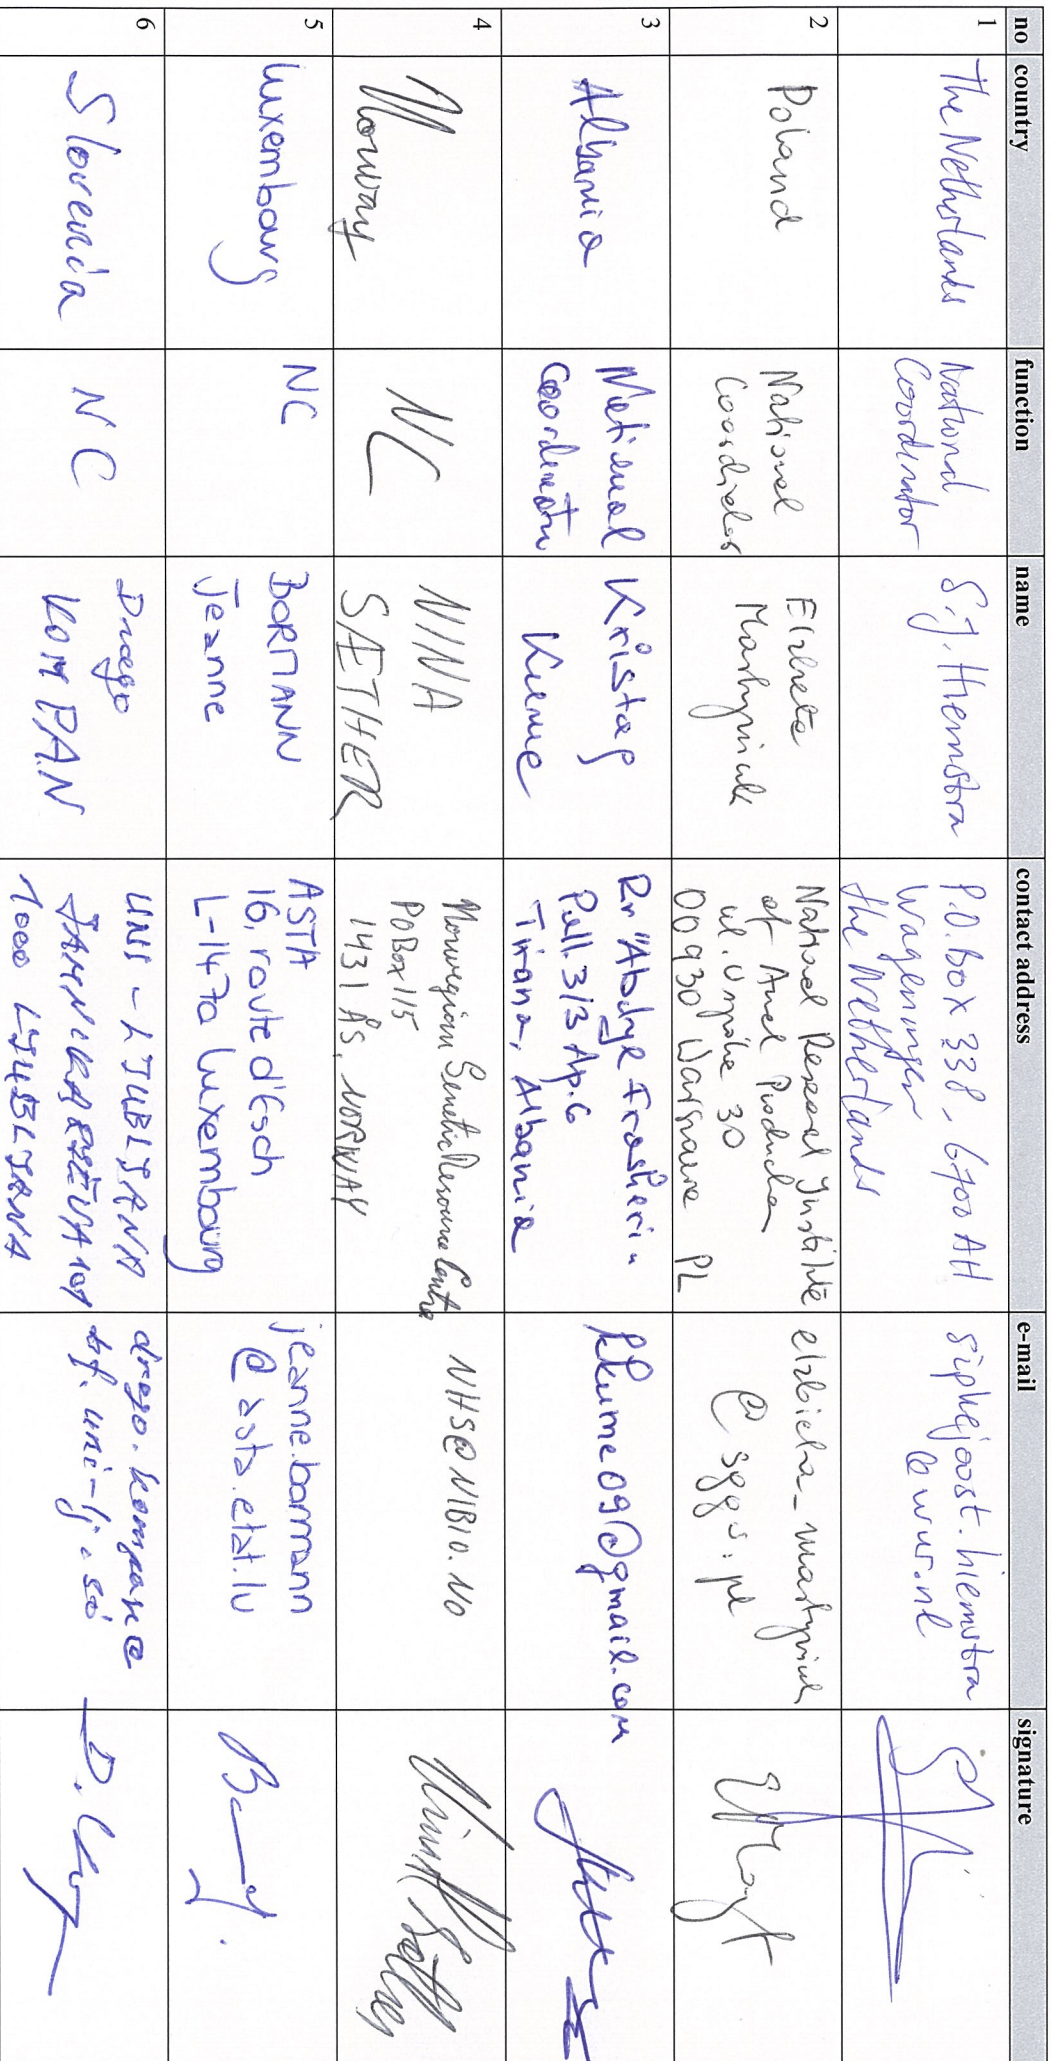 no country function name contact address e-mail signature
1
The Netherlands
National
Coordinator
S.J. Hiemstra
P.O. box 338, 6700 AH
Wageningen
the Netherlands
sipkejoost.hiemstra
@wur.nl
2
Poland
National
Coordinator
Elżbieta
Martyniuk
National Research Institute
of Animal Production
ul. Wspólna 30
00930 Warszawa PL
elzbieta_martyniuk
@sggw.pl
3
Albania
National
Coordinator
Kristaq
Kume
Rr "Abdyl Frasheri"
Pall. 3/3 Ap.6
Tirana, Albania
kkume09@gmail.com
4
Norway
NC
NINA
SÆTHER
Norwegian Genetic Resource Centre
PoBox 115
1431 Ås, NORWAY
NHS@NIBIO.NO
5
Luxembourg
NC
BORMANN
Jeanne
ASTA
16, route d'Esch
L-1470 Luxembourg
jeanne.bormann
@asta.etat.lu
6
Slovenia
NC
Drago
KOMPAN
UNI - LJUBLJANA
JAMNIKARJEVA 101
1000 LJUBLJANA
drago.kompan@
bf.uni-lj.si